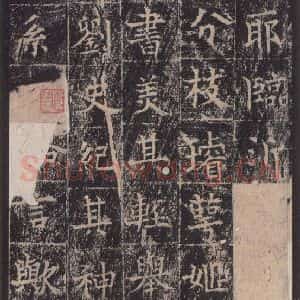 耶臨沂
分枝萼姬
書美其輕舉
劉史紀其神
系言歟